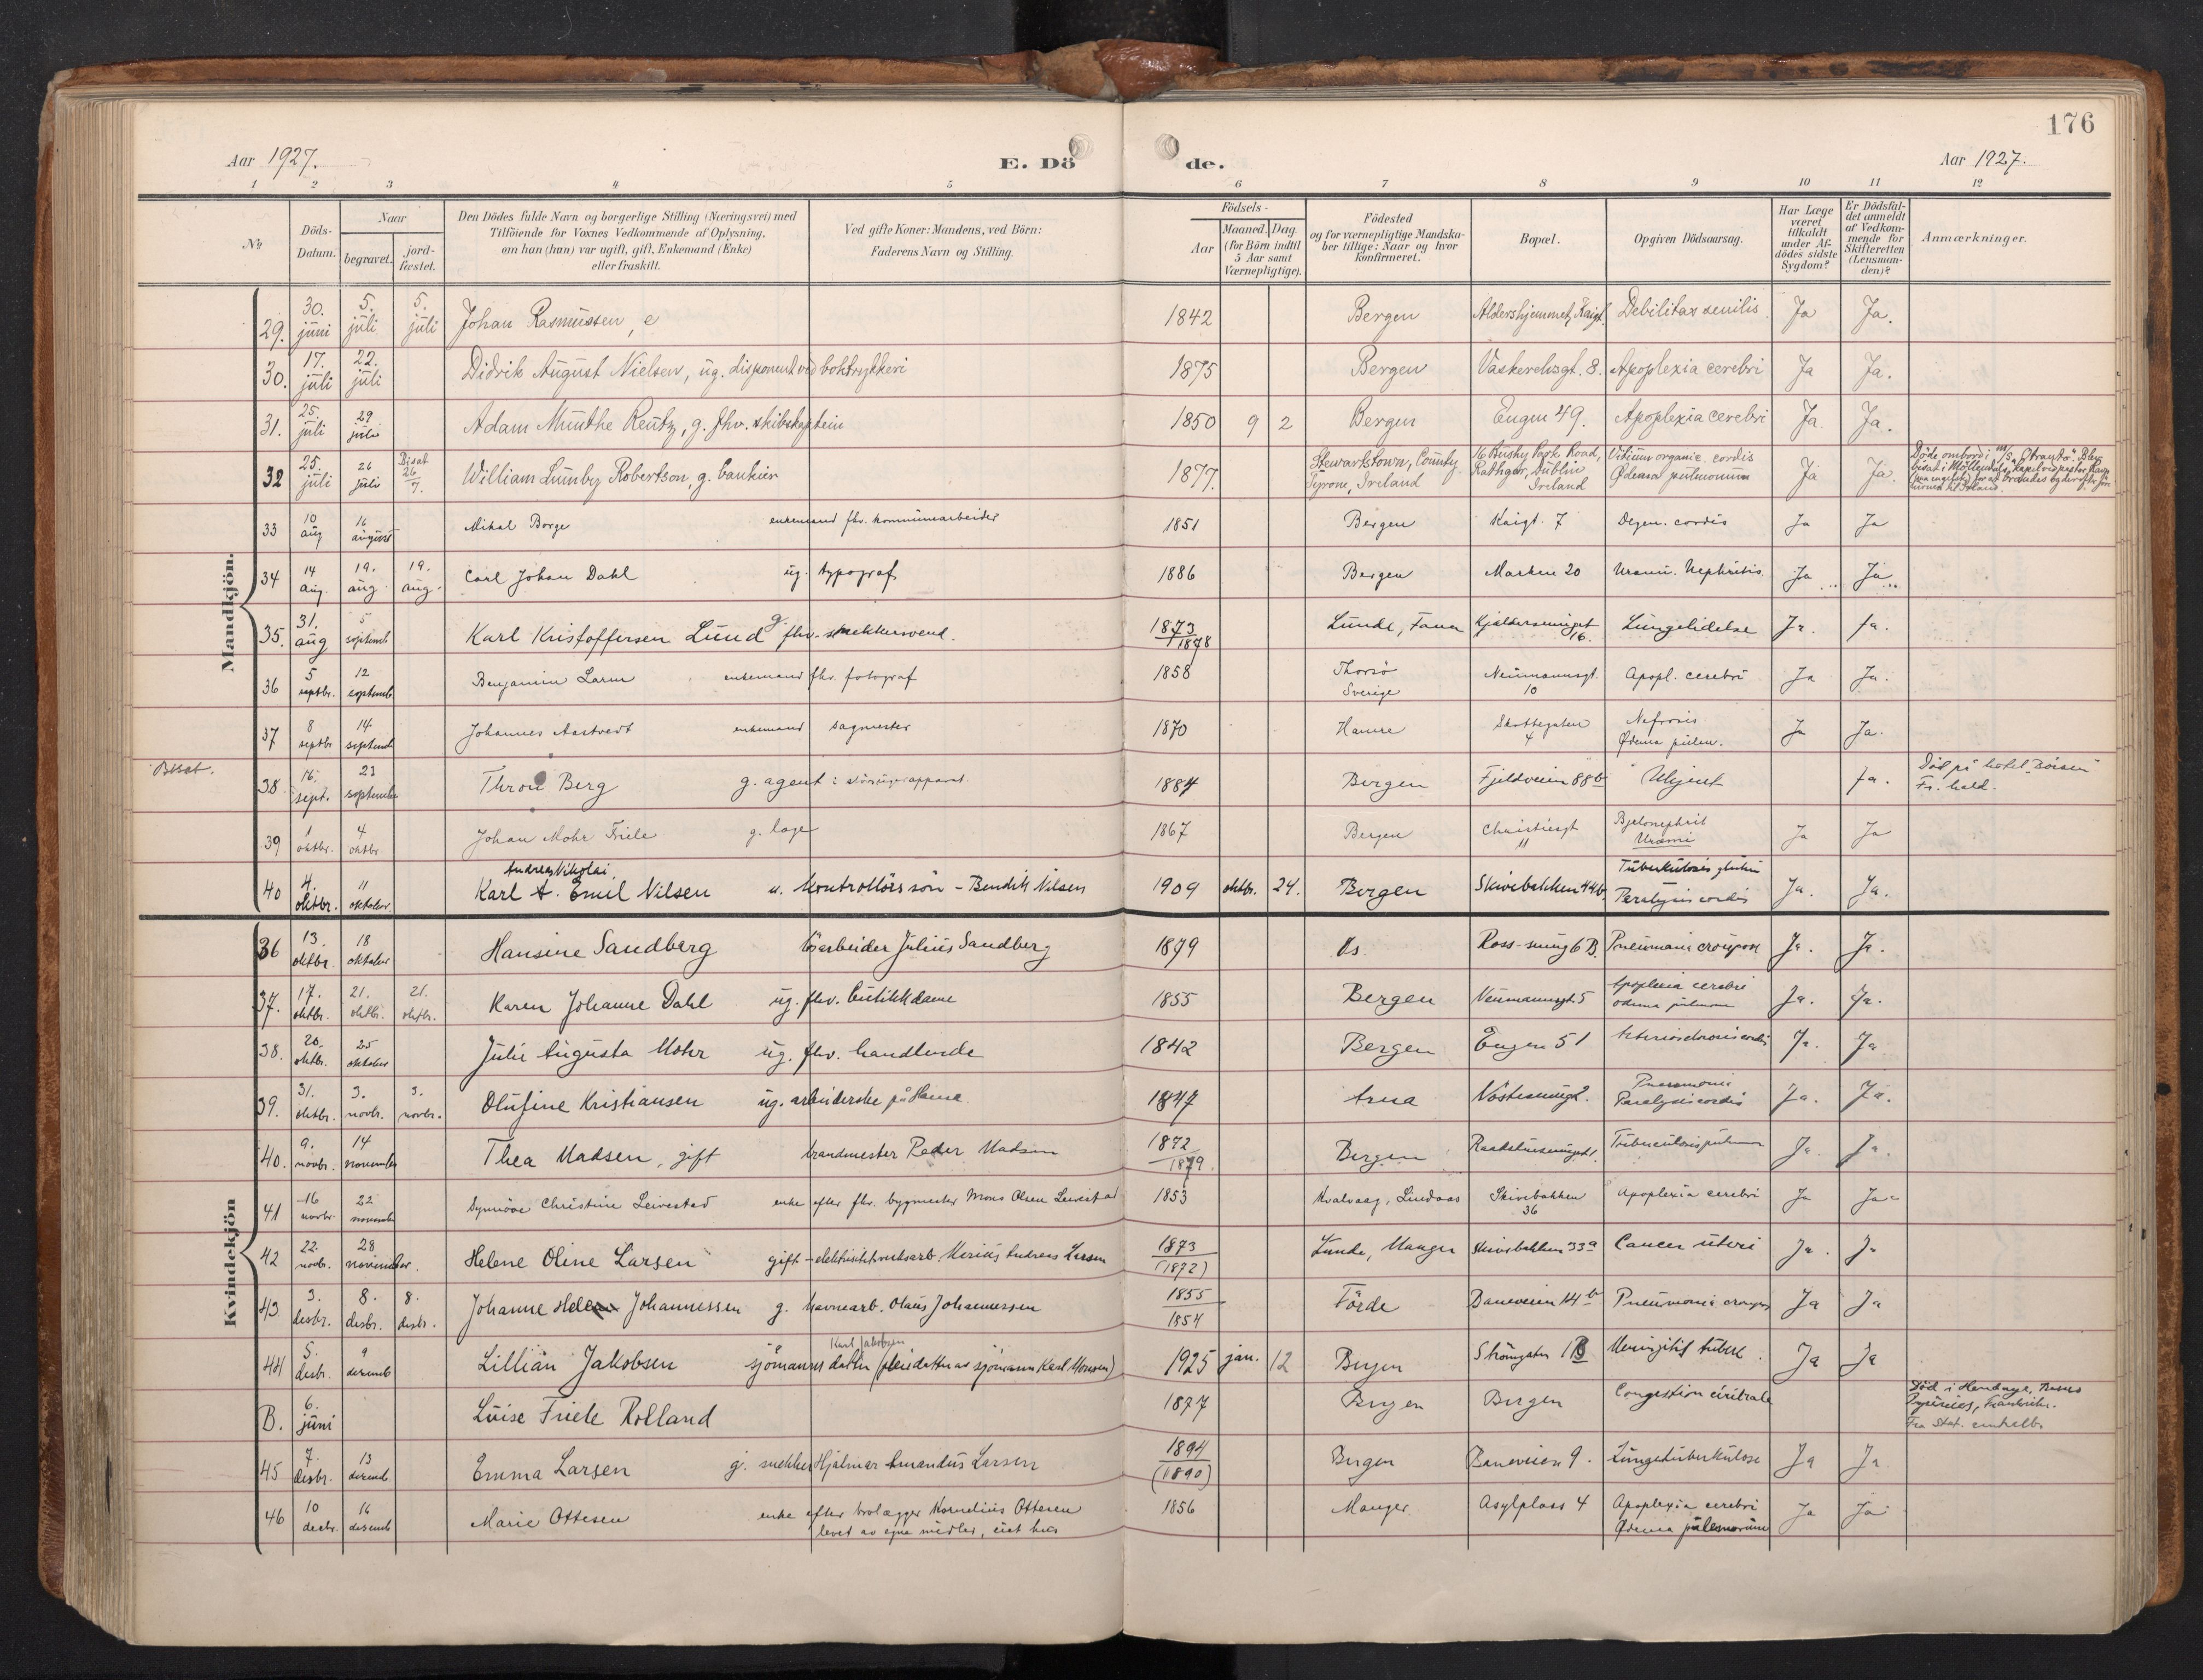 176
Aar 1927.
E. Dö de.
Aar 1927.
1 2 3 4 5 6 7 8 9 10 11 12
No
Döds-Datum.
Naar
begravet.
jord-fæstet.
Den Dödes fulde Navn og borgerlige Stilling (Næringsvei) med
Tilföiende for Voxnes Vedkommende af Oplysning,
om han (hun) var ugift, gift, Enkemand (Enke)
eller fraskilt.
Ved gifte Koner: Mandens, ved Börn:
Faderens Navn og Stilling.
Födsels-
Aar
Maaned. Dag.
(for Börn indtil
5 Aar samt
Værnepligtige).
Födested
og for værnepligtige Mandska-
ber tillige: Naar og hvor
konfirmeret.
Bopæl.
Opgiven Dödsaarsag.
Har Læge
været
tilkaldt
under Af-
dödes sidste
Sygdom?
Er Dödsfal-
det anmeldt
af Vedkom-
mende for
Skifteretten
(Lensman-
den)?
Anmærkninger.
Mandkjön.
29. 30. juni 5. juli 5. juli Johan Rasmussen, e 1842 Bergen Aldershjemmet, Kaigt. Debilitas senilis. Ja Ja.
30. 17. juli 22. juli Didrik August Nielsen, ug. disponent ved boktrykkeri 1875 Bergen Vaskerelvsgt. 8. Apoplexia cerebri Ja Ja.
31. 25. juli 29 juli Adam Munthe Reutz, g. fhv. skibskaptein 1850 9 2 Bergen Engen 49. Apoplexia cerebri Ja. Ja.
32 25. juli 26 juli Bisat 26/7. William Lumby Robertson, g. bankier 1877. Stewartstown, County Tyrone, Ireland 16 Bushy Park Road, Rathgar, Dublin Ireland Vitium organic. cordis Ødema pulmonum Ja Ja. Döde ombord i
33 10 aug 16 august Mikal Borge enkemand fhv. kommunearbeider 1851 Bergen Kaigt. 7 Degen. cordis Ja Ja
34 14 aug. 19. aug 19. aug. Carl Johan Dahl ug. typograf 1886 Bergen Marken 20 Uræmi. Nephritis Ja Ja
35. 31. aug 5 septemb Karl Kristoffersen Lund g. fhv. snekkersvend. 1873/1878 Lunde, Fana 16. Lungelidelse Ja. Ja.
36 5 septbr. 12 septemb. Benjamin Larm enkemand fhv. fotograf 1858 Sverige Neumannsgt. 10 Apopl. cerebri Ja Ja.
37 8 septbr 14. septemb Johannes Aastvedt enkemand sagmester 1870 Hamre Skottegaten 4 Nefrosis Ødema pulm. Ja Ja.
Bisat. 38. 16. sept. 23 september Thron Berg g. agent i 1884 Bergen Fjeldveien 88b Ukjent Ja. Död på hotel
39 1 oktbr. 4 oktbr Johan Mohr Friele g. læge 1867 Bergen Christiesgt 11 Pyelonephrit Uræmi Ja Ja
40 4. oktbr. 11 oktober. Andreas Nikolai, Karl A. Emil Nilsen u. kontrollörs sön - Bendik Nilsen 1909 oktbr. 24. Bergen Skivebakken 44b. Paralysis cordis Ja. Ja.
Kvindekjön
36 13. oktbr. 18 oktober Hansine Sandberg Julius Sandberg 1879 Os Ross-smug 6 B. Pneumonia croupos Ja. Ja.
37. 17. oktbr. 21. oktbr. 21. oktbr. Karen Johanne Dahl ug. fhv. butikkdame 1855 Bergen Neumannsgt. 5 Apoplexia cerebri ødema pulmon Ja. Ja.
38. 20. oktbr. 25 oktober Julie Augusta Mohr ug. fhv. handlende 1842 Bergen Engen 51 Ja. Ja
39. 31. oktbr. 3. novbr. 3. novbr. Olufine Kristiansen ug. arbeiderske 1847 Arna Nöstesmug 2. Pneumonia Paralysis cordis Ja. Ja.
40. 9. novbr. 14 november Thea Madsen, gift brandmester Peder Madsen 1872/1879. Bergen Tuberculosis pulmon Ja. Ja.
41 16 novbr. 22 november Synnöve Christine Leivestad enke efter fhv. bygmester Mons Olsen Leivestad 1853 Kvalvaag, Lindaas Skivebakken 36 Apoplexia cerebri Ja Ja
42 22. novbr. 28 november. Helene Oline Larsen gift - elektrisitetsverksarb. Andreas Larsen 1873 (1872) Lunde, Manger Skivebakken 33a Cancer uteri Ja. Ja
43 3. desbr. 8. desbr. 8. desbr. Johanne Helene Johannessen g. havnearb. Olaus Johannessen 1855 1854 Förde Baneveien 14b Pneumonia croupos Ja Ja
44 5. desbr. 9 desemb Lillian Jakobsen Karl Jakobsen sjömanns datter (pleiedatter av sjömann Karl Monsen) 1925 jan. 12 Bergen Strömgaten Meningitis tuberk. Ja Ja
B. 6. juni Luise Friele Rolland 1877 Bergen Bergen Congestion cerebrale Död i Hendaye, Basses Pyrénées, Frankrike.
45 7. desbr. 13 desemb Emma Larsen g. snekker Hjalmar Amandus Larsen 1894 (1890) Bergen Baneveien 9. Lungetuberkulose Ja Ja
46 10 desbr. 16 desemb Marie Ottesen enke efter brolægger Kornelius Ottesen levet av egne midler, eiet hus 1856 Manger Asylplass 4 Apoplexia cerebri Ødema pulmonum Ja Ja